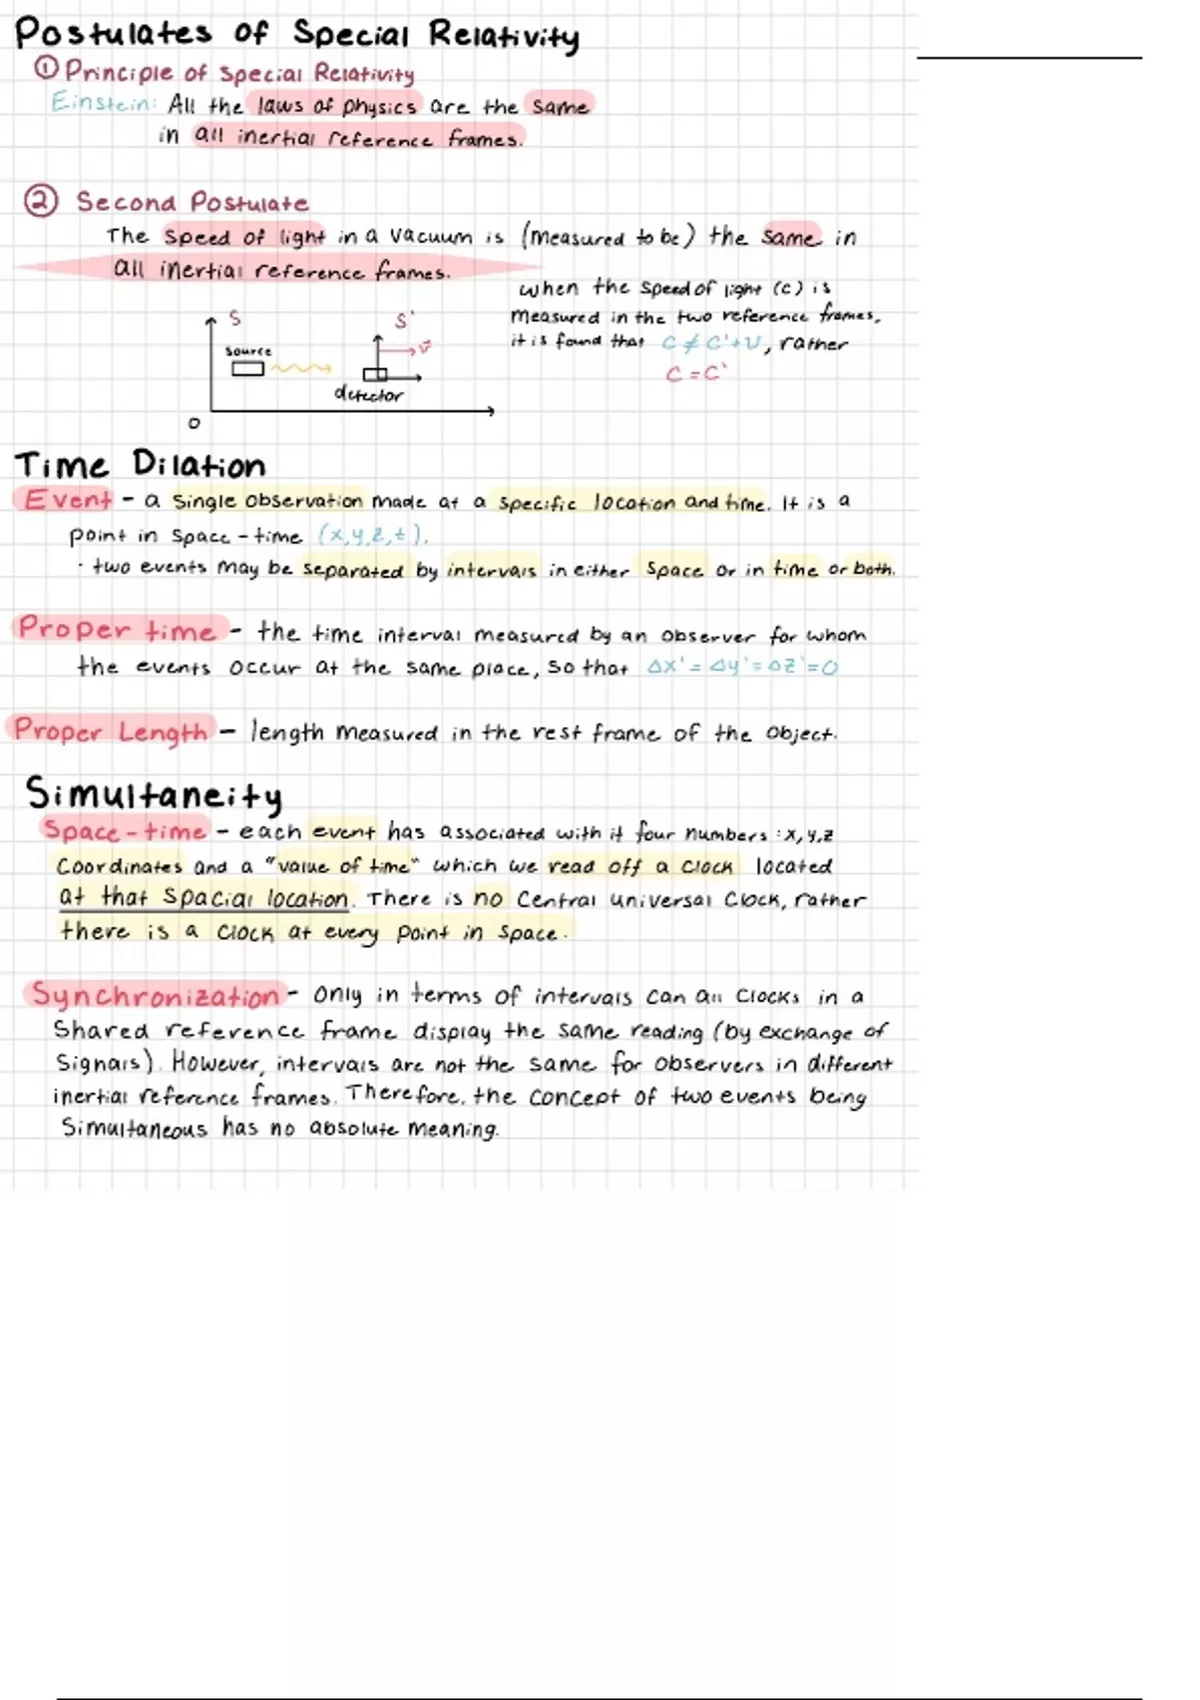 Postulates of Special Relativity
① Principle of Special Relativity
Einstein: All the laws of physics are the same
in all inertial reference frames.
② Second Postulate
The speed of light in a vacuum is (measured to be) the same in
all inertial reference frames.
when the speed of light (c) is
measured in the two reference frames,
it is found that c ≠ c'+v, rather
c = c'
S
S'
source
v⃗
detector
O
Time Dilation
Event - a single observation made at a specific location and time. It is a
point in space-time (x,y,z,t).
· two events may be separated by intervals in either space or in time or both.
Proper time - the time interval measured by an observer for whom
the events occur at the same place, so that Δx'=Δy'=Δz'=0
Proper Length - length measured in the rest frame of the object.
Simultaneity
Space-time - each event has associated with it four numbers: x,y,z
coordinates and a "value of time" which we read off a clock located
at that spacial location. There is no central universal clock, rather
there is a clock at every point in space.
Synchronization - only in terms of intervals can all clocks in a
shared reference frame display the same reading (by exchange of
signals). However, intervals are not the same for observers in different
inertial reference frames. Therefore, the concept of two events being
simultaneous has no absolute meaning.